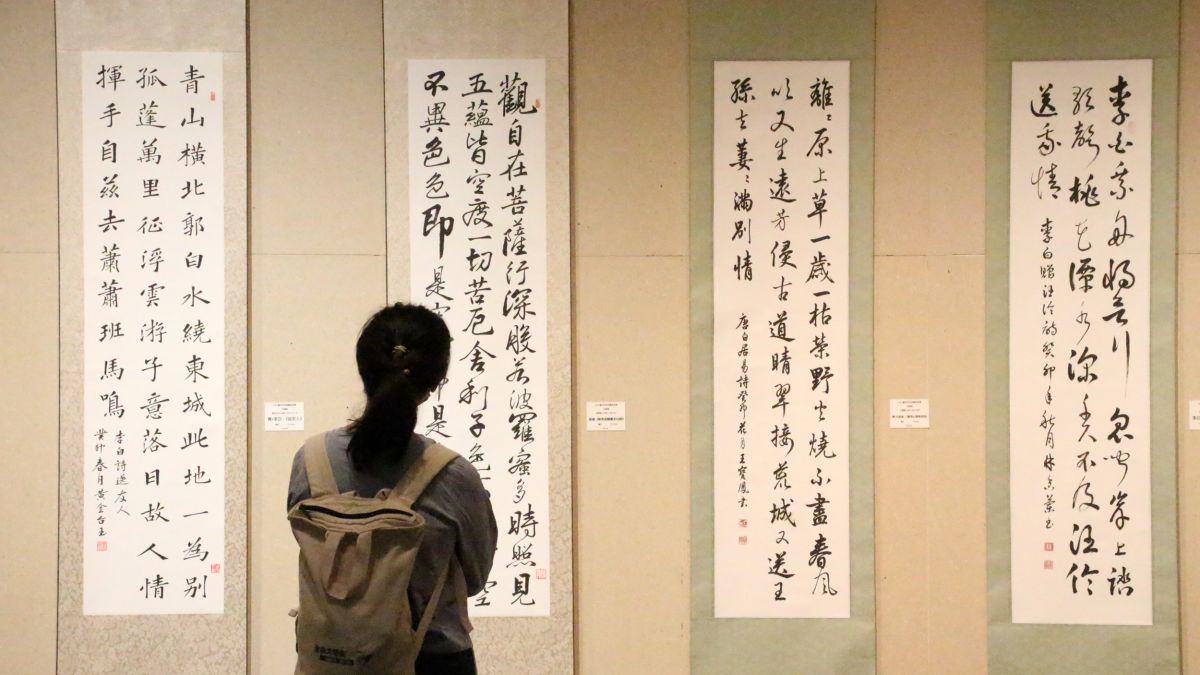 青山橫北郭白水繞東城此地一為別
孤蓬萬里征浮雲游子意落日故人情
揮手自茲去蕭蕭班馬鳴
李白詩送友人
癸卯春月黃金台
觀自在菩薩行深般若波羅蜜多時照見
五蘊皆空度一切苦厄舍利子色 空
不異色色即是空 是
離〻原上草一歲一枯榮野火燒不盡春風
吹又生遠芳侵古道晴翠接荒城又送王
孫去萋〻滿別情
唐白居易詩癸卯花月王寶鳳書
李白乘舟將欲行忽聞岸上踏
歌聲桃花潭水深千尺不及汪倫
送我情
李白贈汪倫詩癸卯年秋月林